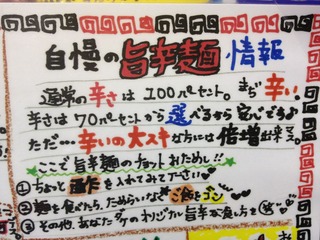 自慢の旨辛麺情報
通常の辛さは100パーセント。まだ辛い
辛さは70パーセントから選べるから安心できるよ
ただ…辛いの大スキな方には倍増出来マス
ここで旨辛麺のチョットおためし!!
①ちょっと酢を入れてみて下さい♥
②麺を食べたら、ためらいなくご飯をゴン
③その他、あなたダケのオリジナル旨辛な食し方を